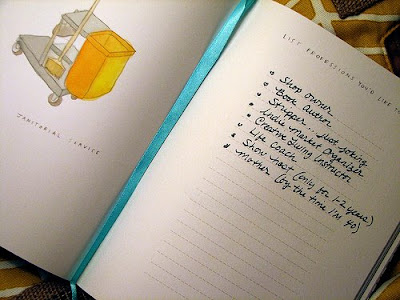 JANITORIAL SERVICE
LIST PROFESSIONS YOU'D LIKE T
Shop owner
Book author
Stripper... just joking
Indie Market Organizer
Creative Living Instructor
Life Coach
Show host (only for 1-2 years)
Mother (by the time I'm 40)